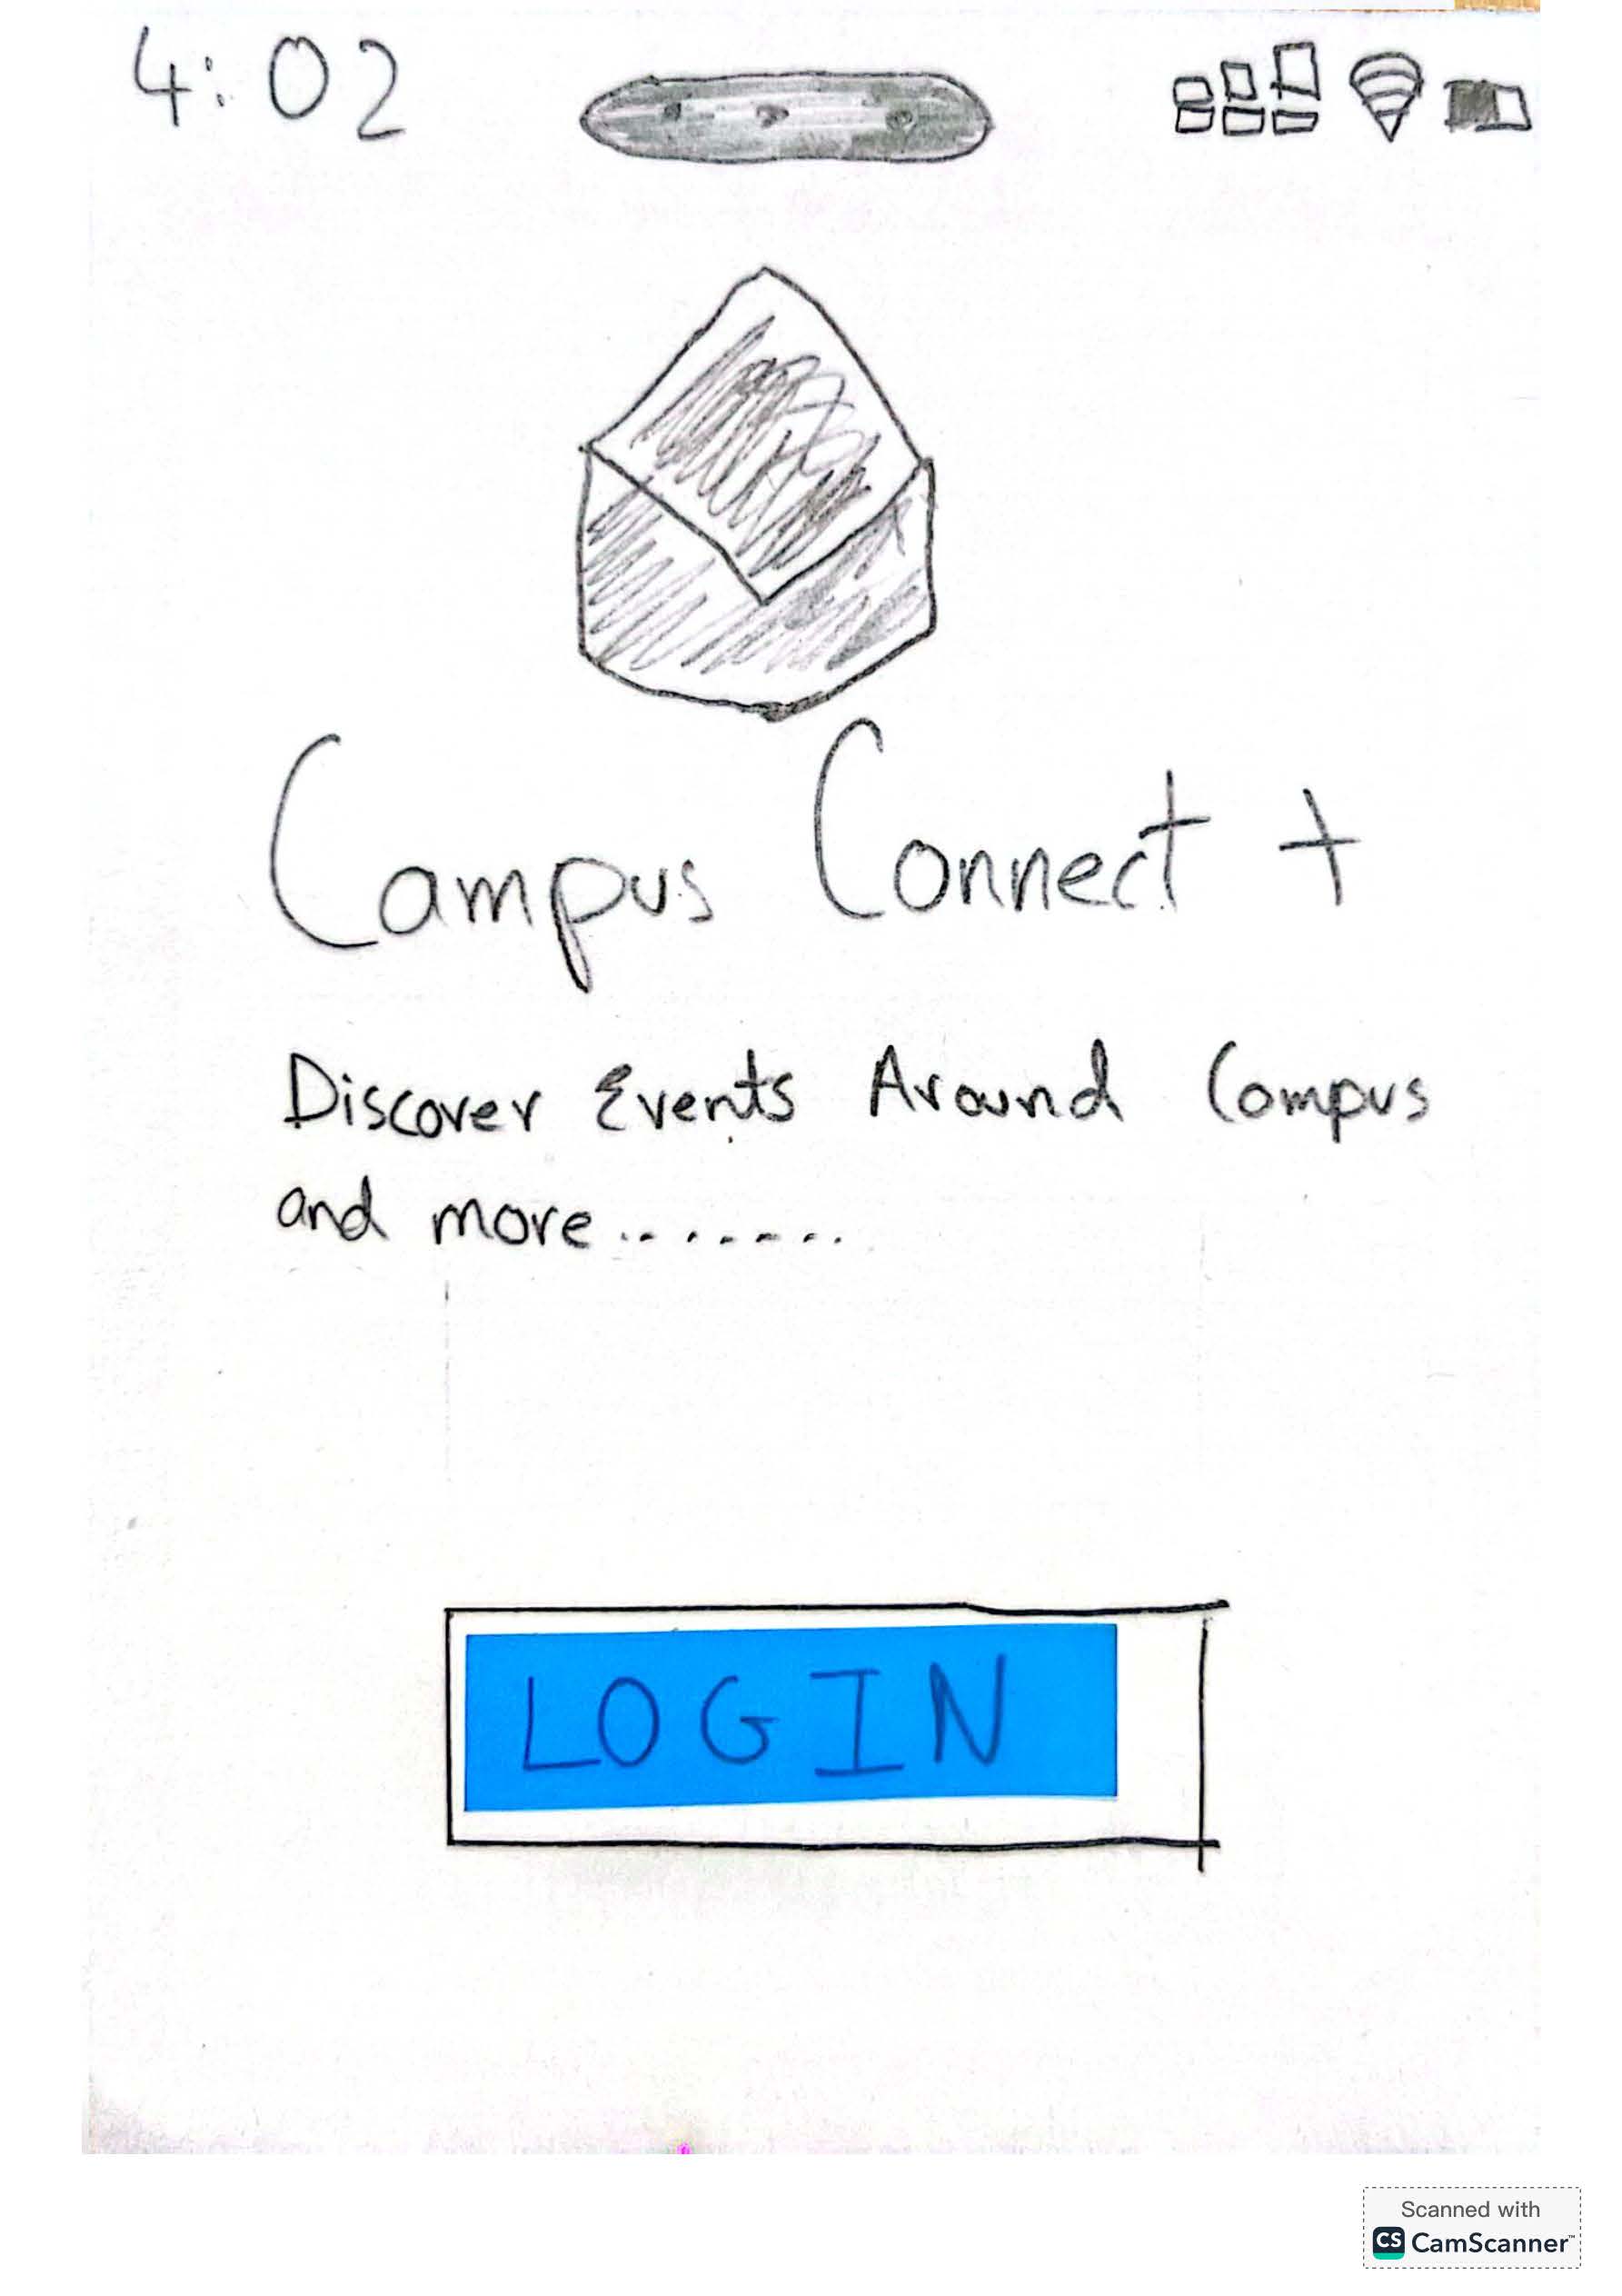 4:02
Campus Connect +
Discover Events Around Campus
and more........
LOGIN
Scanned with
CS CamScanner™